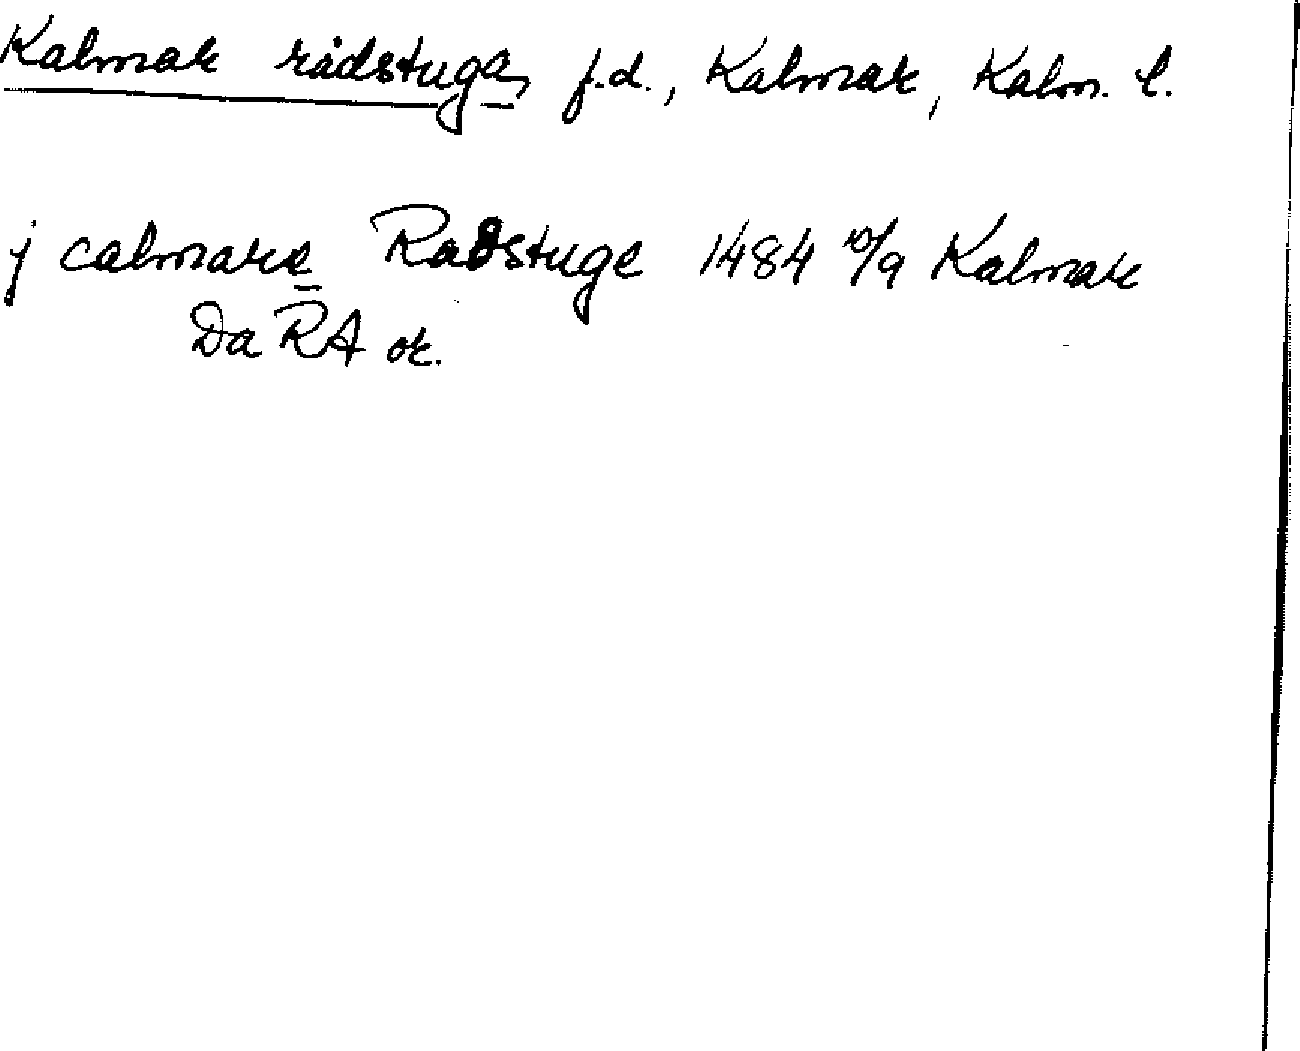 Kalmar rådstuga, f.d., Kalmar, Kalm. l.
j calmare Radstuge 1484 10/9 Kalmar
Da RA or.